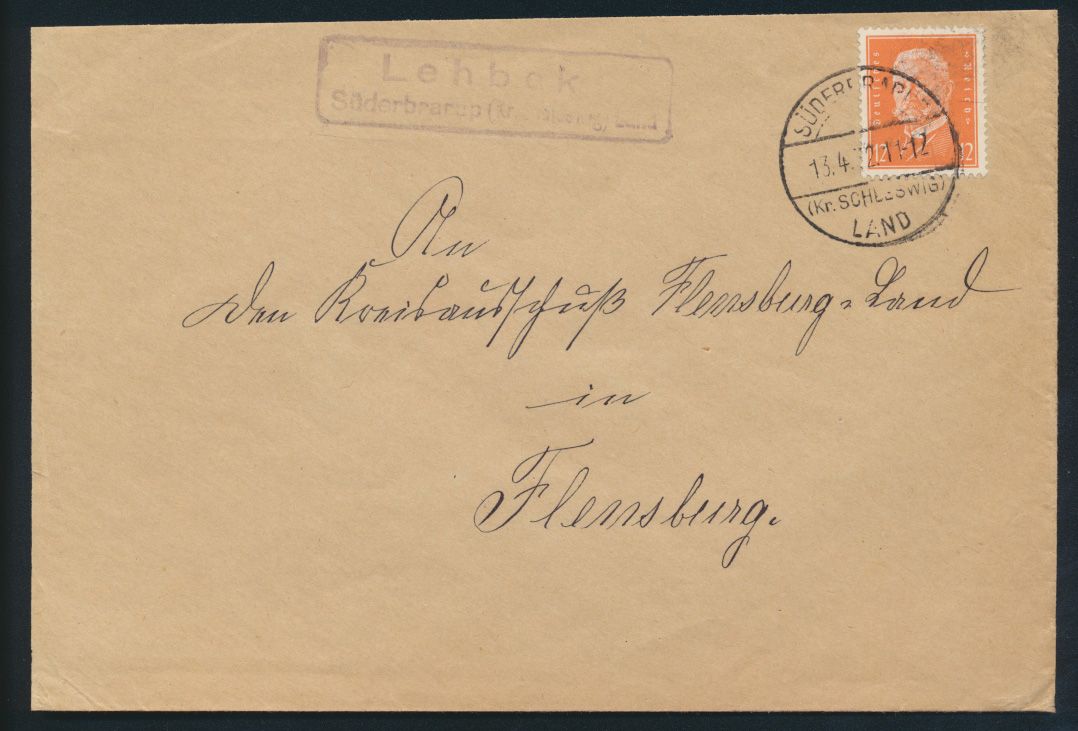 Lehbek
Süderbrarup (Kr. Schleswig) Land
Deutsches Reich
12 12
SÜDERBRARUP
13.4.32.11-12
(Kr. SCHLESWIG)
LAND
An
den Kreisausschuß Flensburg=Land
in
Flensburg.